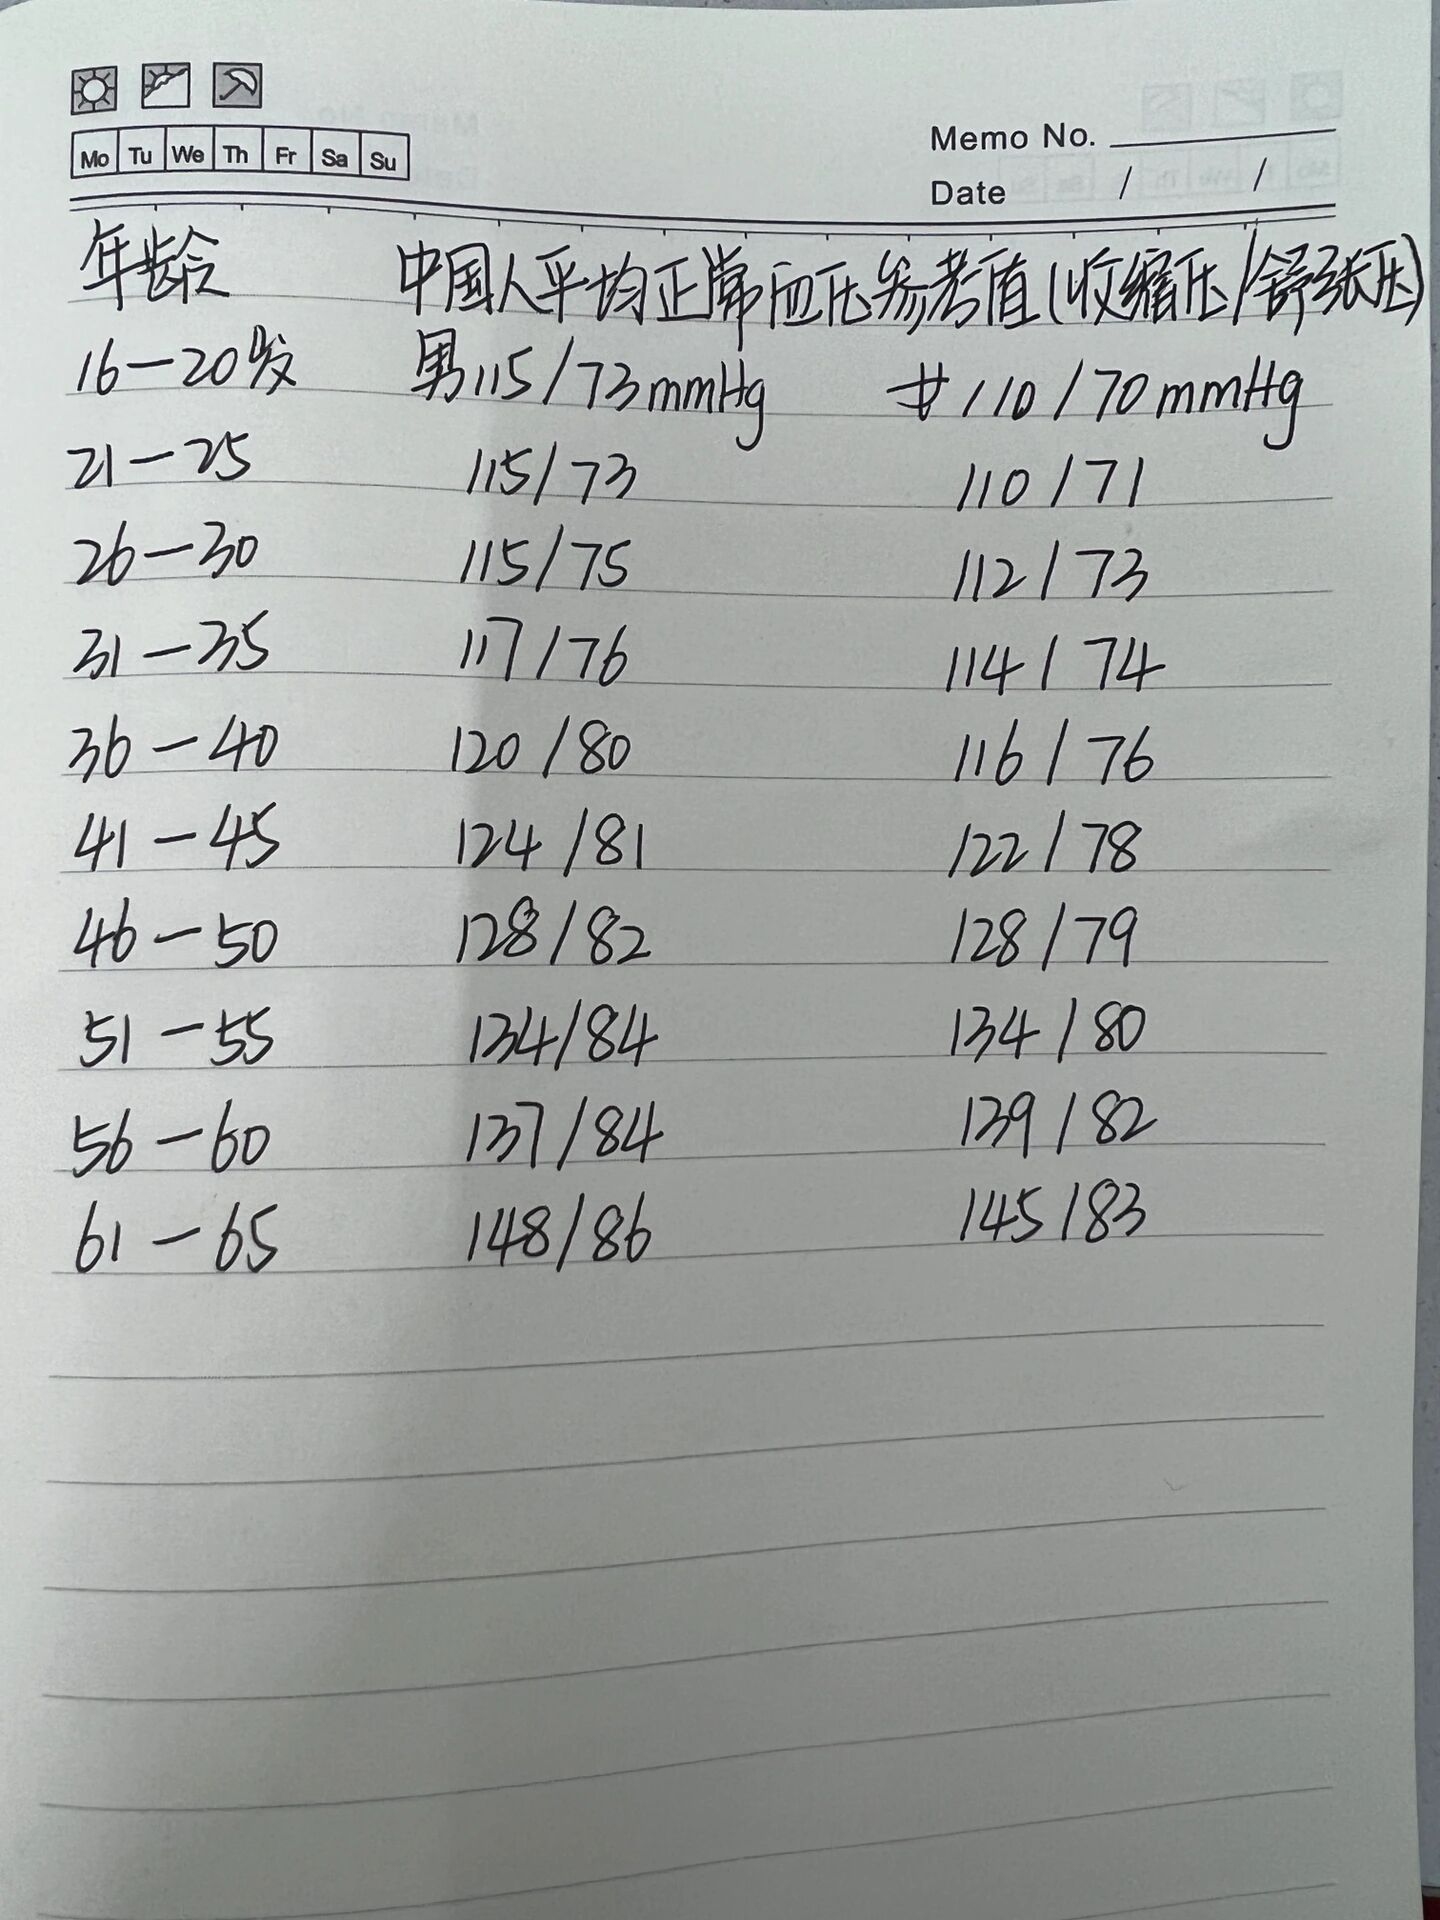 Mo Tu We Th Fr Sa Su
Memo No.
Date / /
年龄 中国人平均正常血压参考值(收缩压/舒张压)
16—20岁 男115/73mmHg 女110/70mmHg
21—25 115/73 110/71
26—30 115/75 112/73
31—35 117/76 114/74
36—40 120/80 116/76
41—45 124/81 122/78
46—50 128/82 128/79
51—55 134/84 134/80
56—60 137/84 139/82
61—65 148/86 145/83